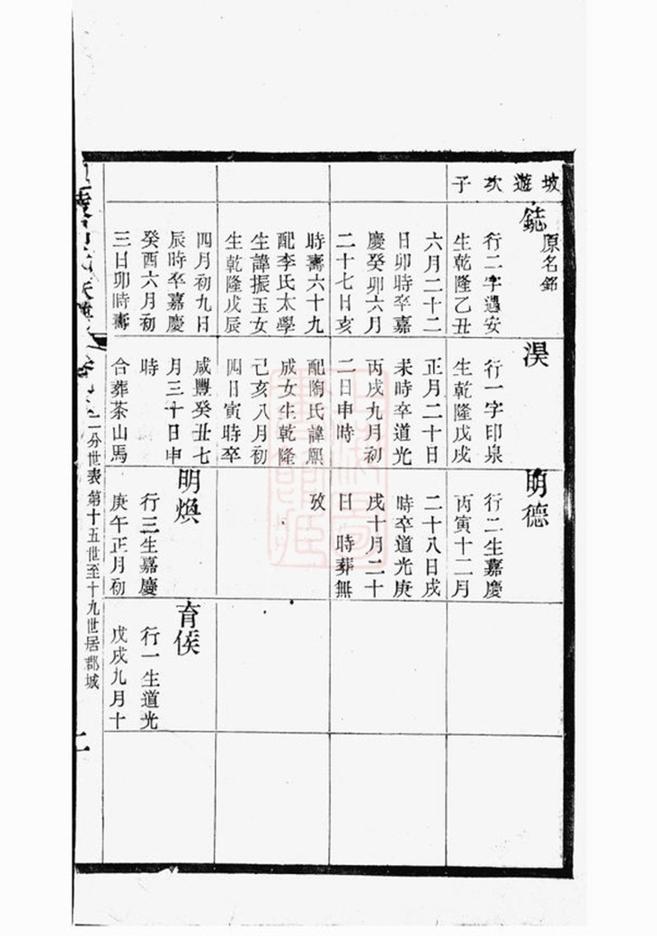 坡遊次子
鋕 原名銘
行二字遇安
生乾隆乙丑
六月二十二
日卯時卒嘉
慶癸卯六月
二十七日亥
時壽六十九
配李氏太學
生諱振玉女
生乾隆戊辰
四月初九日
辰時卒嘉慶
癸酉六月初
三日卯時壽
淏
行一字印泉
生乾隆戊戌
正月二十日
未時卒道光
丙戌九月初
二日申時
配陶氏諱熙
成女生乾隆
己亥八月初
四日寅時卒
咸豐癸丑七
月三十日申
時
合葬茶山馬
明德
行二生嘉慶
丙寅十二月
二十八日戌
時卒道光庚
戌十月二十
日 時葬無
攷
明煥
行三生嘉慶
庚午正月初
育俟
行一生道光
戊戌九月十
一分世表 第十五世至十九世居郡城